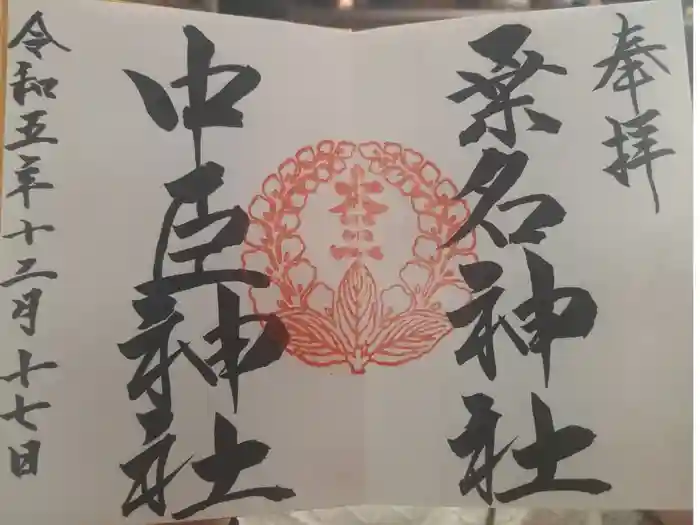 奉拝
桑名神社
中臣神社
令和五年十二月十七日